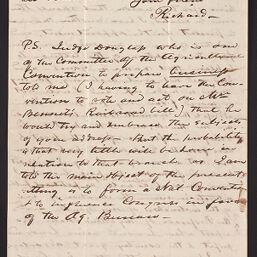 Your friend
Richard
P.S. Judge Douglass who is one
of the Committee of the Agricultural
Convention to prepare business
told me (I having to leave the Con-
vention to vote and act on Mr
Bennett's Railroad bill) that he
would try and embrace the subjects
of your address. But the probability
is that very little will be done in
relation to that branch as I am
told the main object of the present
sitting is to form a Nat Convention
& to influence Congress in favor
of the Ag. Bureau.